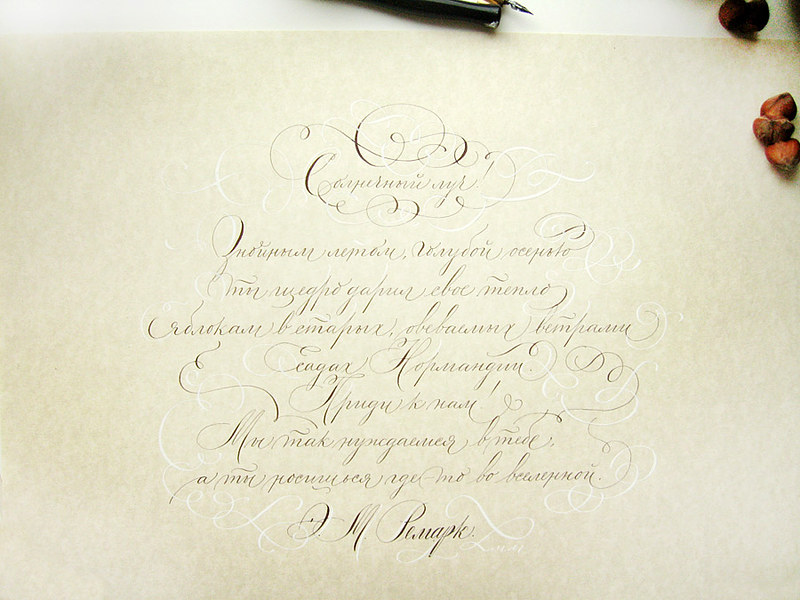 Солнечный луч!
Знойным летом, голубой осенью
ты щедро дарил свое тепло
яблокам в старых, овеваемых ветрами
садах Нормандии.
Приди к нам!
Мы так нуждаемся в тебе,
а ты носишься где-то во вселенной.
Э. М. Ремарк.